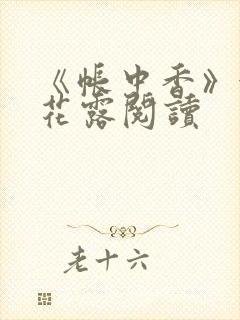 《帳中香》
花露閱讀
老十六